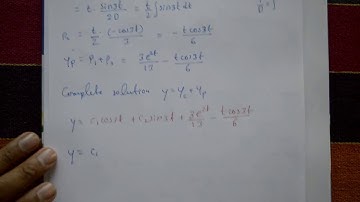 = t · sin3t / 2D = t/2 ∫ sin3t dt
P₂ = t/2 · (-cos3t)/3 = - t cos3t / 6
yp = P₁ + P₂ = 3e^2t / 13 - t cos3t / 6
Complete solution y = yc + yp
y = c₁ cos3t + c₂ sin3t + 3e^2t / 13 - t cos3t / 6
y = c₁